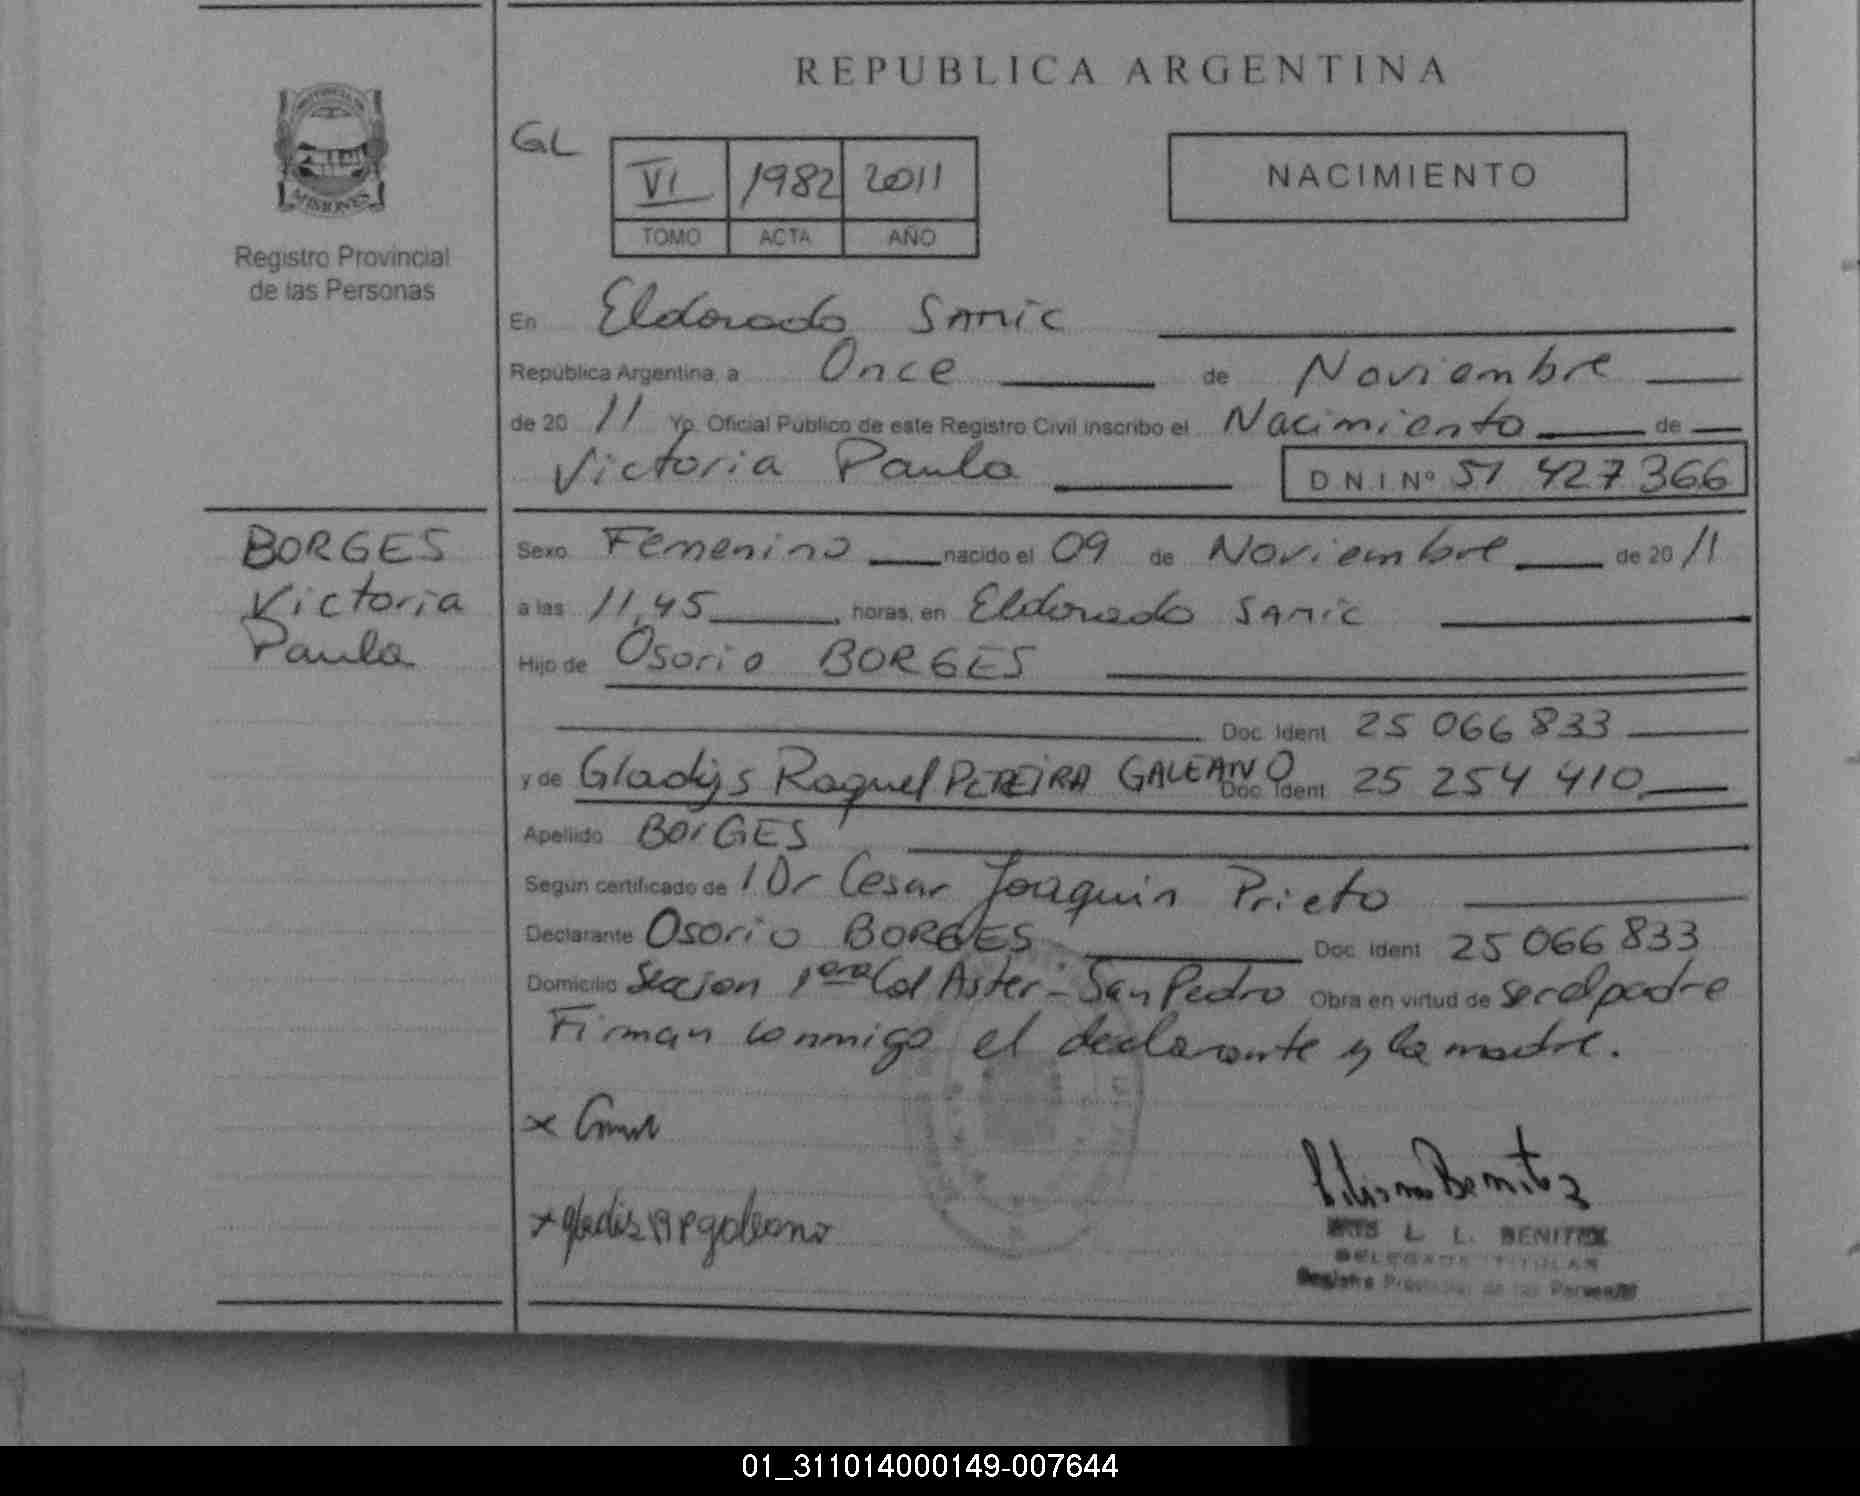 REPUBLICA ARGENTINA
PROVINCIA DE
MISIONES
Registro Provincial
de las Personas
GL
VI 1982 2011
TOMO ACTA AÑO
NACIMIENTO
En Eldorado SAMIC
República Argentina, a Once de Noviembre
de 20 11 Yo, Oficial Público de este Registro Civil inscribo el Nacimiento de
Victoria Paula D N.I.Nº 51 427 366
BORGES
Victoria
Paula
Sexo Femenino nacido el 09 de Noviembre de 20 11
a las 11,45 horas, en Eldorado SAMIC
Hijo de Osorio BORGES
Doc. Ident. 25 066 833
y de Gladys Raquel PEREIRA GALEANO Doc. Ident. 25 254 410
Apellido BORGES
Según certificado de 1 Dr Cesar Joaquin Prieto
Declarante Osorio BORGES Doc. Ident. 25 066 833
Domicilio Seccion 1era Col Aster - San Pedro Obra en virtud de ser el padre
Firman conmigo el declarante y la madre.
x
x gladis R P galeano
Liliana Benitez
L. L. BENITEZ
DELEGADA TITULAR
Registro Provincial de las Personas
01_311014000149-007644